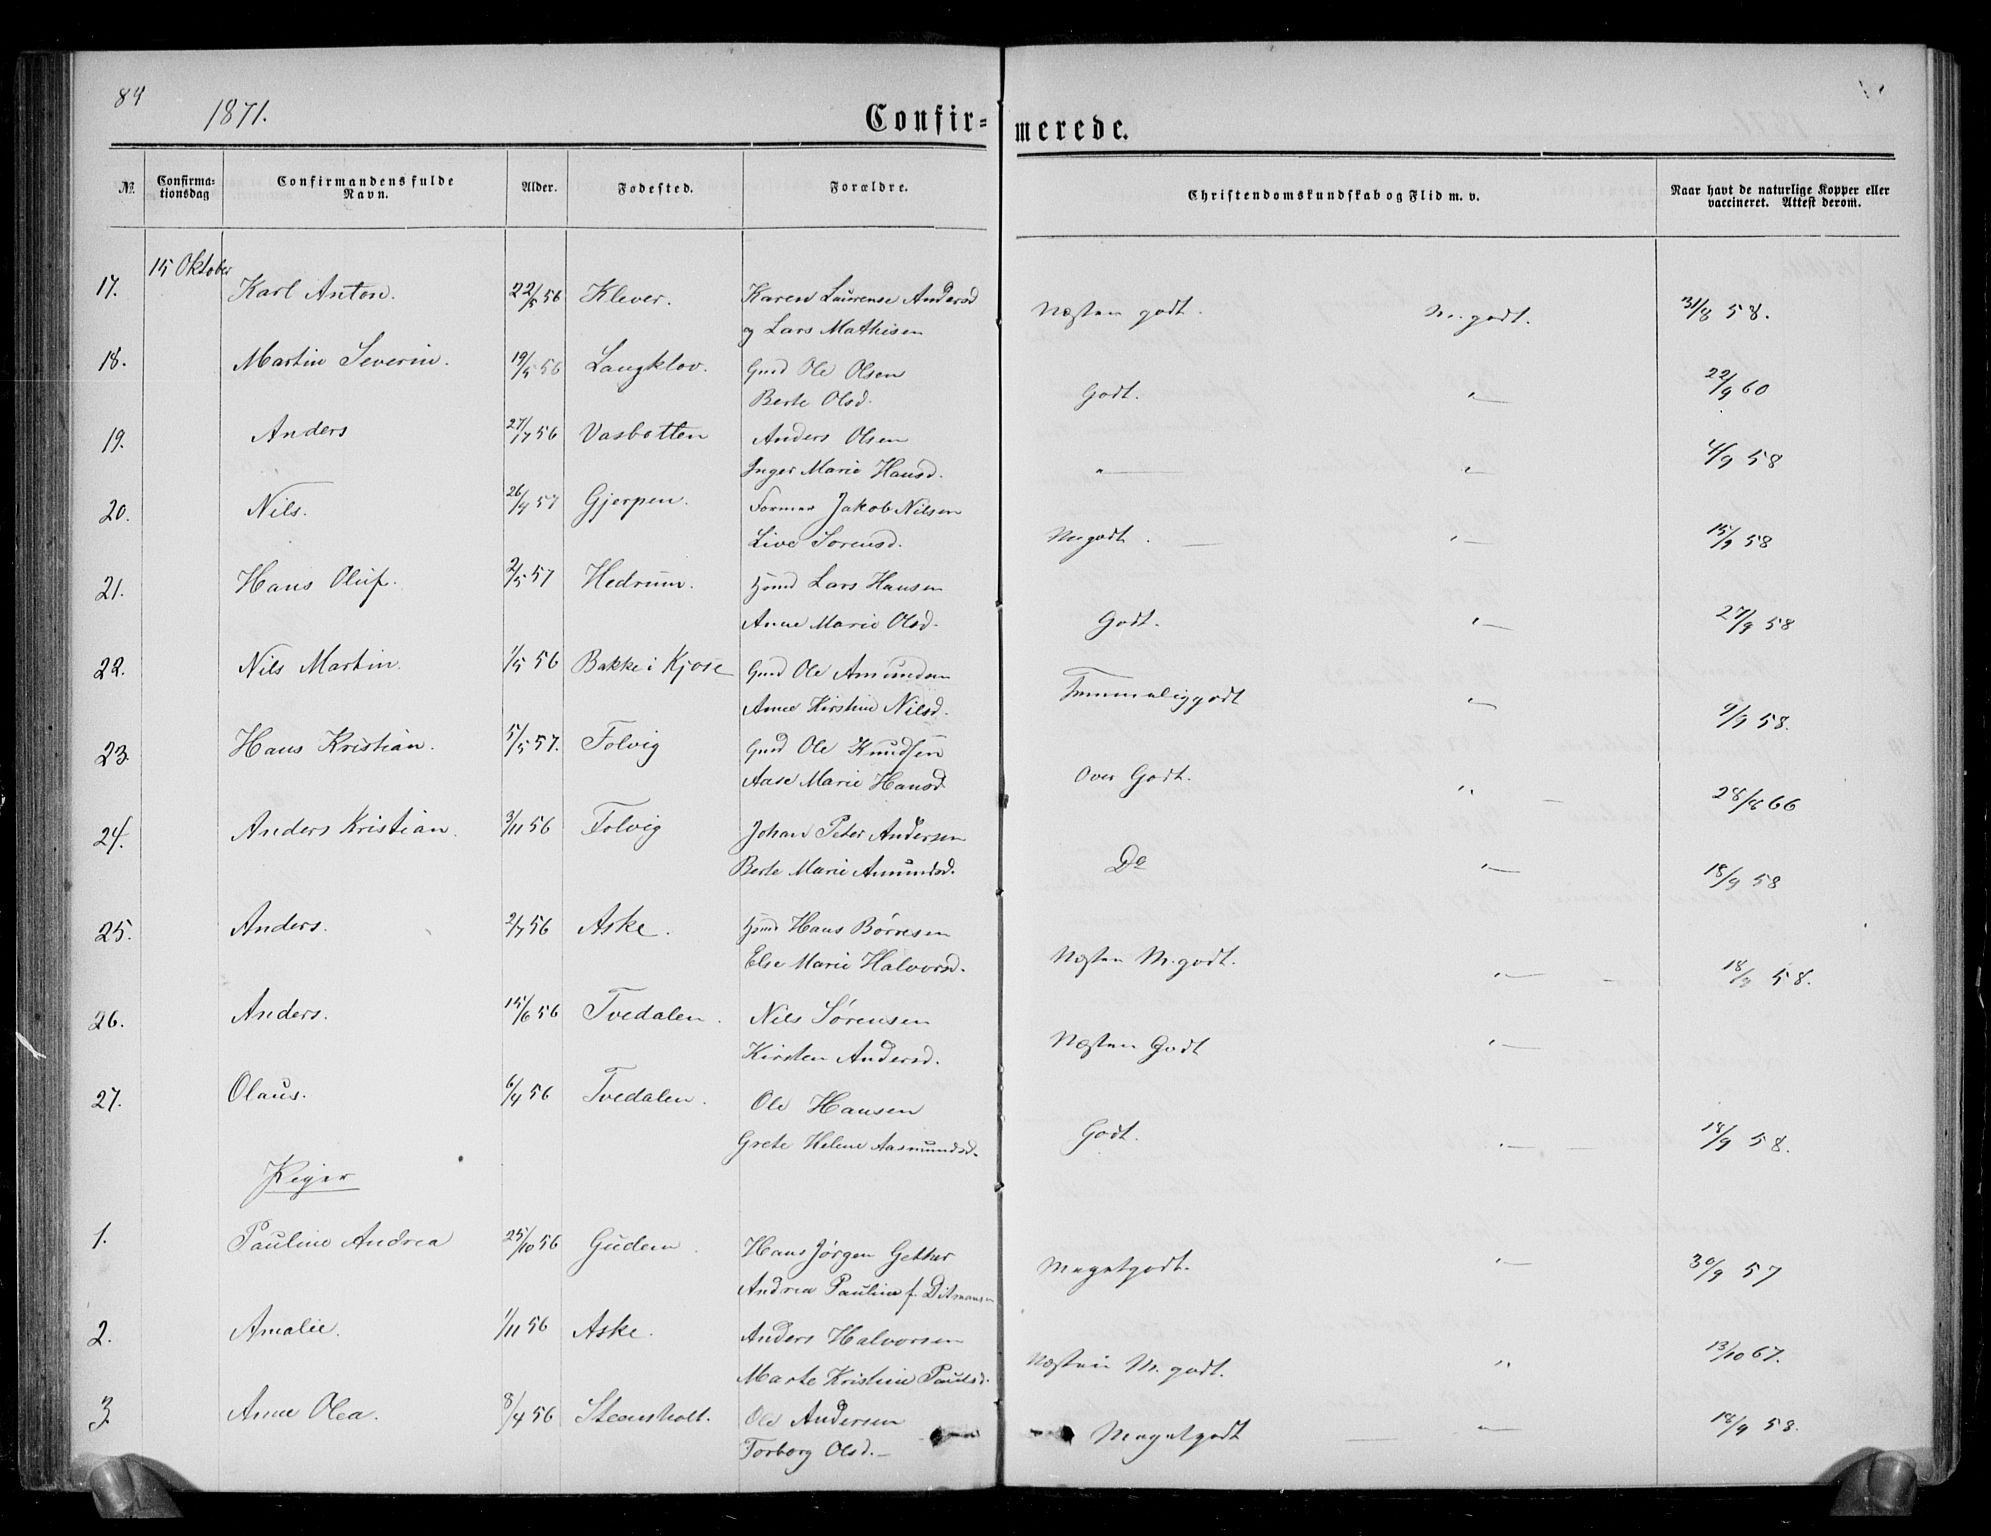 84
1871.
Confirmerede.
No. Confirmationsdag Confirmandens fulde Navn. Alder. Fødested. Forældre. Christendomskundskab og Flid m. v. Naar havt de naturlige Kopper eller vaccineret. Attest derom.
15 Oktober
17. Karl Anton. 22/5 56 Klever. Karen Laurense Andersd Næsten godt. M. godt. 31/8 58.
og Lars Mathisen
18. Martin Severin. 19/5 56 Langklov. Gmd Ole Olsen Godt. " 22/9 60
Berte Olsd.
19. Anders 27/7 56 Vasbotten Anders Olsen " " 4/9 58
Inger Marie Hansd.
20. Nils. 26/4 57 Gjerpen. Former Jakob Nilsen M. godt. " 15/9 58
Live Sorensd.
21. Hans Oluf. 2/5 57 Hedrum. Hmd Lars Hansen Godt. " 27/9 58
Anne Marie Olsd.
22. Nils Martin. 1/5 56 Bakke i Kjose Gmd Ole Amundsen Temmelig godt " 9/9 58.
Anne Kirstine Nilsd.
23. Hans Kristian. 5/5 57. Folvig Gmd Ole Knudsen Over Godt. " 28/8 66
Aase Marie Hansd
24. Anders Kristian. 3/11 56 Folvig Johan Peter Andersen Do " 18/9 58
Berte Marie Amundsd.
25. Anders. 2/7 56 Aske. Hmd Hans Børresen Næsten M. godt. " 18/9 58.
Else Marie Halvorsd.
26. Anders. 15/6 56 Tvedalen. Nils Sørensen Næsten Godt "
Kirsten Andersd.
27. Olaus. 6/4 56 Tvedalen. Ole Hansen Godt. " 18/9 58.
Grete Helene Aasmundsd.
Piger
1. Pauline Andrea 25/10 56 Gudem. Hans Jørgen Gether Megetgodt. " 30/9 57
Andrea Pauline f. Ditmansen
2. Amalie. 1/11 56 Aske. Anders Halvorsen Næsten M. godt. " 13/10 67.
Marte Kristine Paulsd.
3. Anne Olea. 8/4 56 Steensholt. Ole Andersen Megetgodt " 18/9 58.
Torborg Olsd.